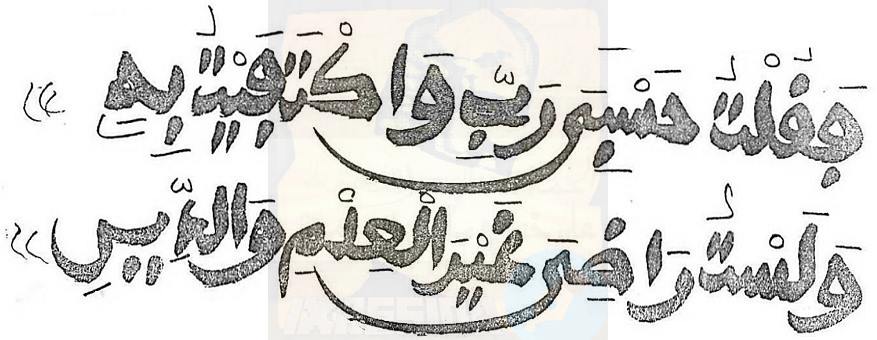 فَقُلْتُ حَسْبِيَ رَبِّ وَاكْتَفَيْتُ بِهِ
وَلَسْتُ رَاضِيَ غَيْرَ الْعِلْمِ وَالدِّينِ